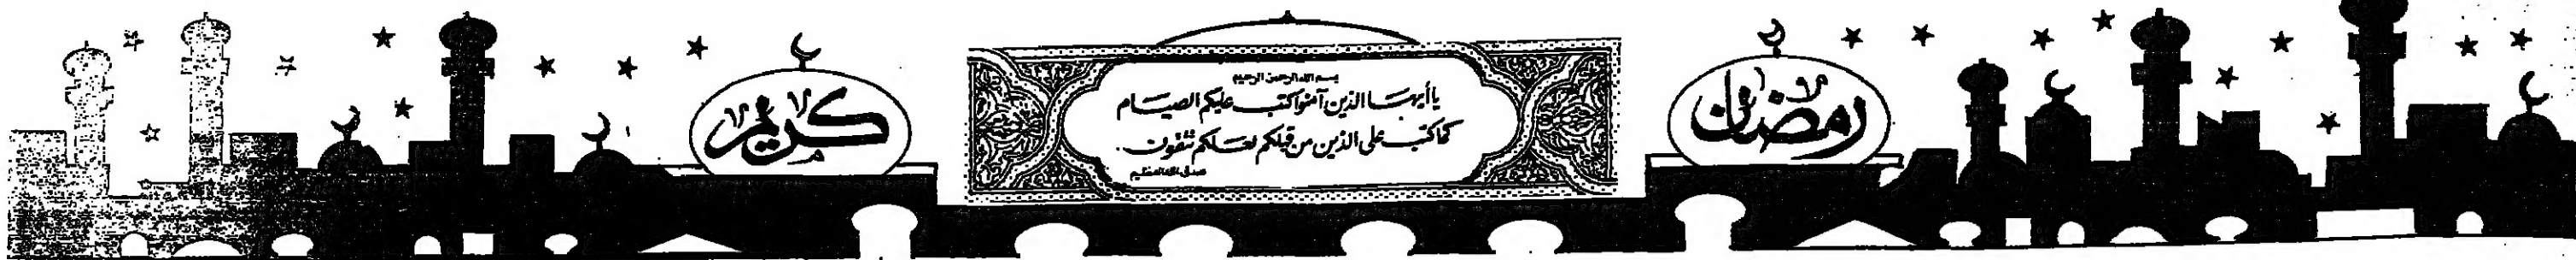 رمضان
بسم الله الرحمن الرحيم
يا أيها الذين آمنوا كتب عليكم الصيام
كما كتب على الذين من قبلكم لعلكم تتقون .
صدق الله العظيم
كريم